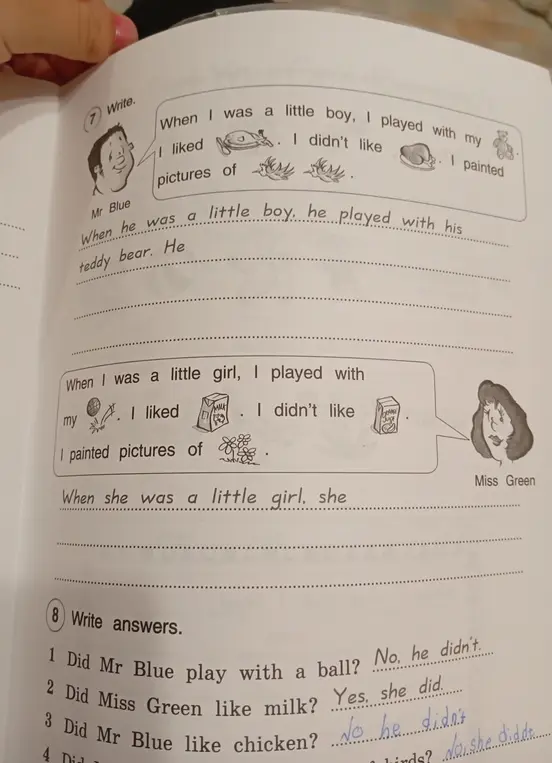 7 Write.
When I was a little boy, I played with my .
I liked . I didn't like . I painted
pictures of .
Mr Blue
When he was a little boy, he played with his
teddy bear. He
When I was a little girl, I played with
my . I liked . I didn't like .
I painted pictures of .
Miss Green
When she was a little girl, she
8 Write answers.
1 Did Mr Blue play with a ball? No, he didn't.
2 Did Miss Green like milk? Yes, she did.
3 Did Mr Blue like chicken? No he didn't
4 birds? No, she